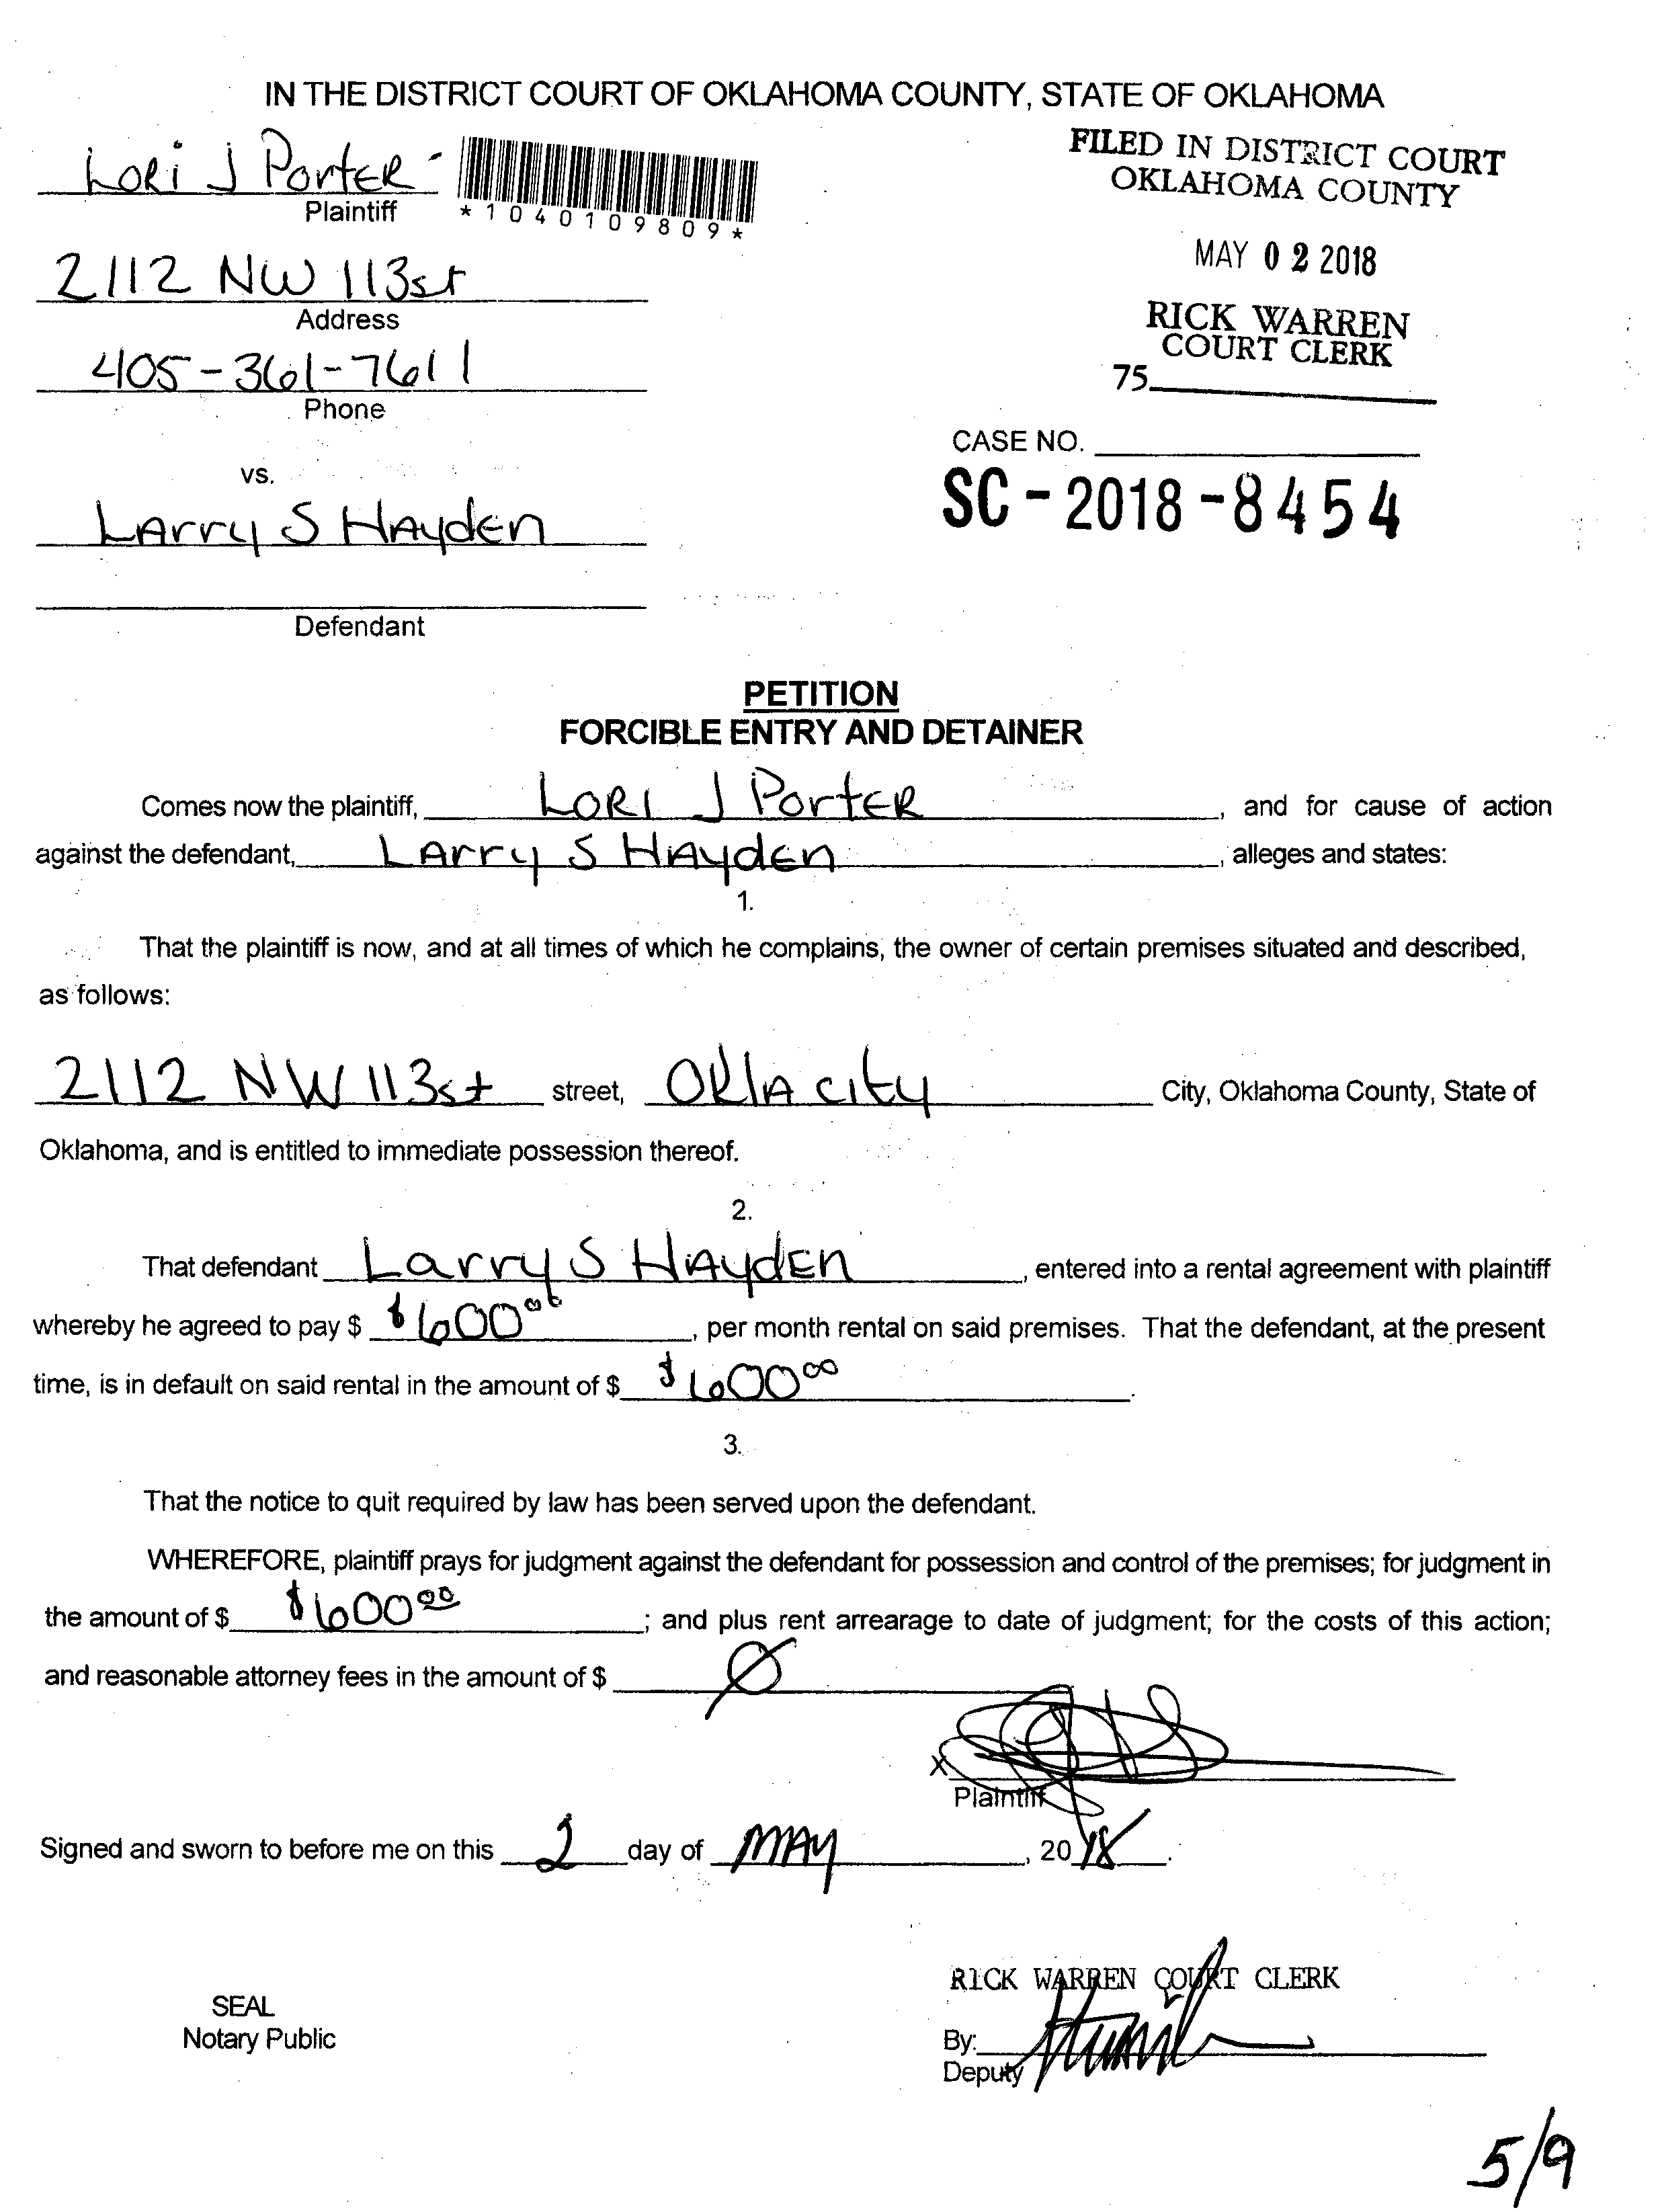 IN THE DISTRICT COURT OF OKLAHOMA COUNTY, STATE OF OKLAHOMA
Lori J Porter
Plaintiff
*1040109809*
FILED IN DISTRICT COURT
OKLAHOMA COUNTY
MAY 02 2018
RICK WARREN
COURT CLERK
75
2112 NW 113st
Address
405-361-7611
Phone
CASE NO.
SC-2018-8454
vs.
Larry S Hayden
Defendant
PETITION
FORCIBLE ENTRY AND DETAINER
Comes now the plaintiff, Lori J Porter, and for cause of action
against the defendant, Larry S Hayden, alleges and states:
1.
That the plaintiff is now, and at all times of which he complains, the owner of certain premises situated and described,
as follows:
2112 NW 113st street, Okla city City, Oklahoma County, State of
Oklahoma, and is entitled to immediate possession thereof.
2.
That defendant Larry S Hayden, entered into a rental agreement with plaintiff
whereby he agreed to pay $ $600.00, per month rental on said premises. That the defendant, at the present
time, is in default on said rental in the amount of $ $600.00.
3.
That the notice to quit required by law has been served upon the defendant.
WHEREFORE, plaintiff prays for judgment against the defendant for possession and control of the premises; for judgment in
the amount of $ $600.00; and plus rent arrearage to date of judgment; for the costs of this action;
and reasonable attorney fees in the amount of $ Ø
X
Plaintiff
Signed and sworn to before me on this 2 day of MAY, 20 18.
RICK WARREN COURT CLERK
SEAL
Notary Public
By:
Deputy
5/9